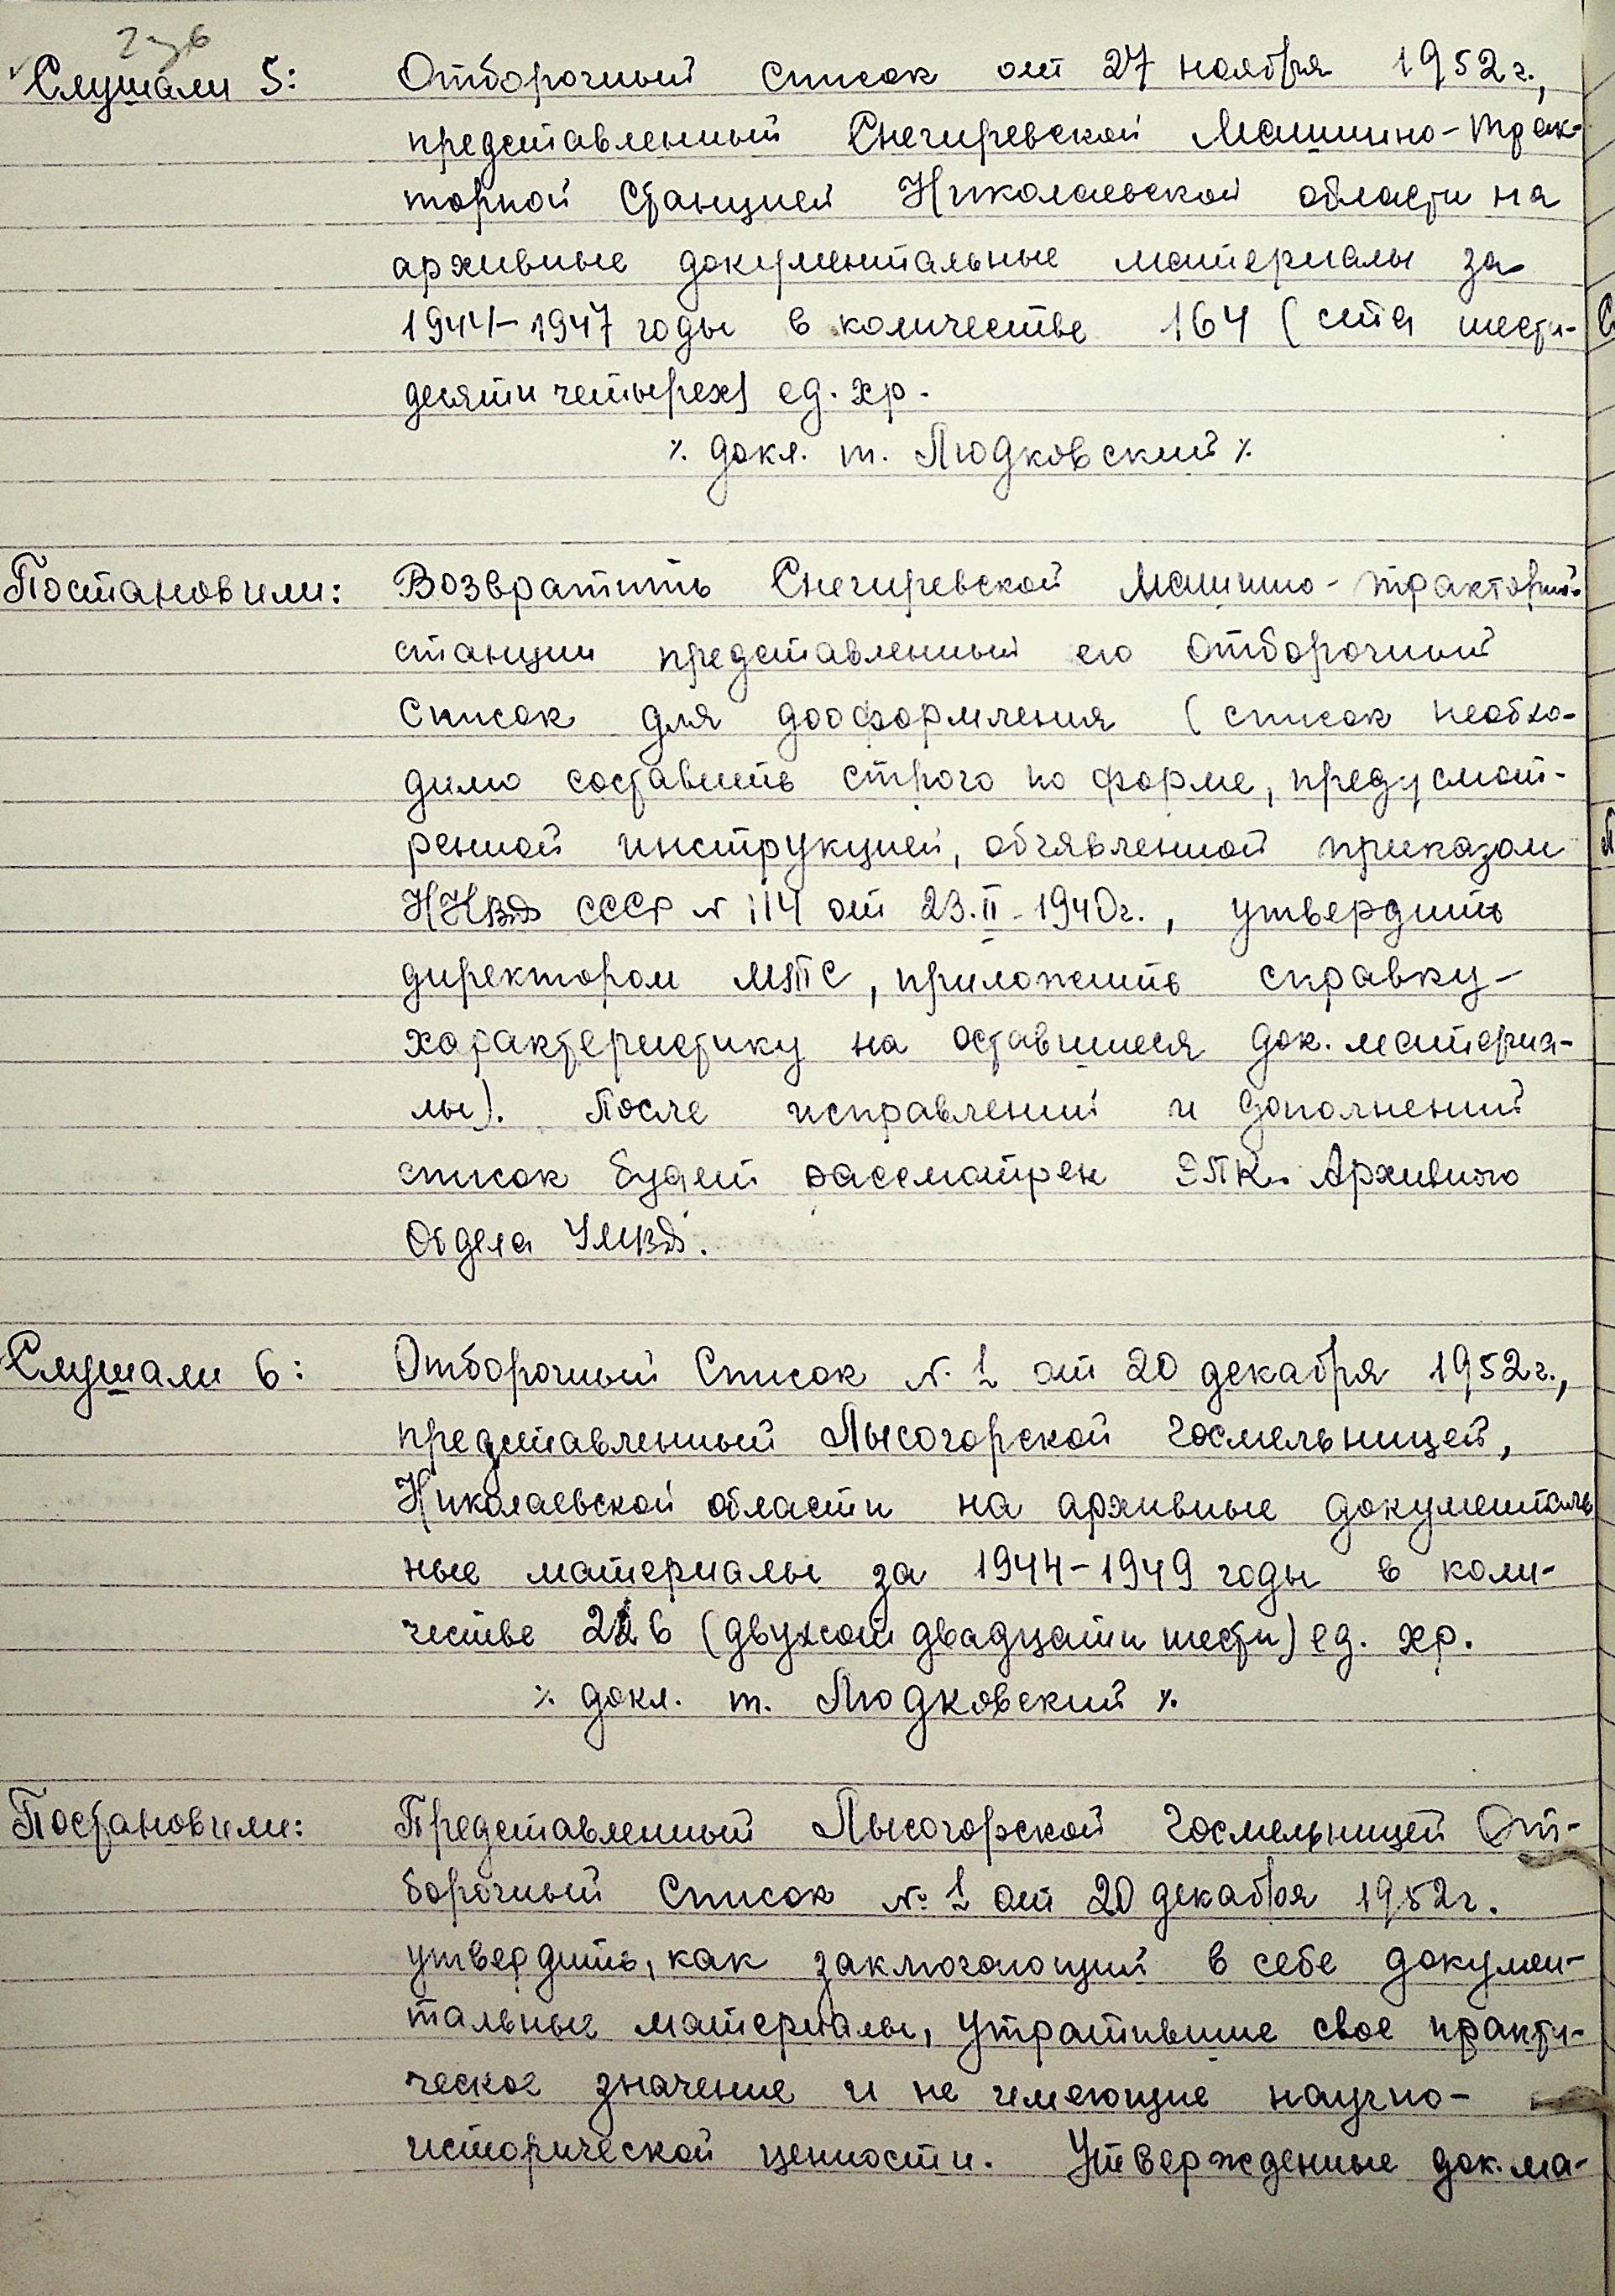 Слушали 5: Отборочный список от 27 ноября 1952 г.,
представленный Снегиревской Машинно-трак-
торной Станцией Николаевской области на
архивные документальные материалы за
1944-1947 годы в количестве 164 (ста шести-
десяти четырех) ед. хр.
٪ докл. т. Людковский ٪
Постановили: Возвратить Снегиревской Машинно-тракторной
станции представленный ею Отборочный
Список для дооформления (список необхо-
димо составить строго по форме, предусмот-
ренной инструкцией, объявленной приказом
НКВД СССР № 114 от 23.II-1940г., утвердить
директором МТС, приложить справку-
характеристику на оставшиеся док. материа-
лы). После исправлений и дополнений
список будет рассмотрен ЭПК Архивного
Отдела УМВД.
Слушали 6: Отборочный Список №. 1 от 20 декабря 1952 г.,
представленный Лысогорской Госмельницей,
Николаевской области на архивные документаль
ные материалы за 1944-1949 годы в коли-
честве 226 (двухсот двадцати шести) ед. хр.
٪ докл. т. Людковский ٪
Постановили: Представленный Лысогорской Госмельницей От-
борочный Список № 1 от 20 декабря 1952 г.
утвердить, как заключающий в себе докумен-
тальные материалы, утратившие свое практи-
ческое значение и не имеющие научно-
исторической ценности. Утвержденные док. ма-